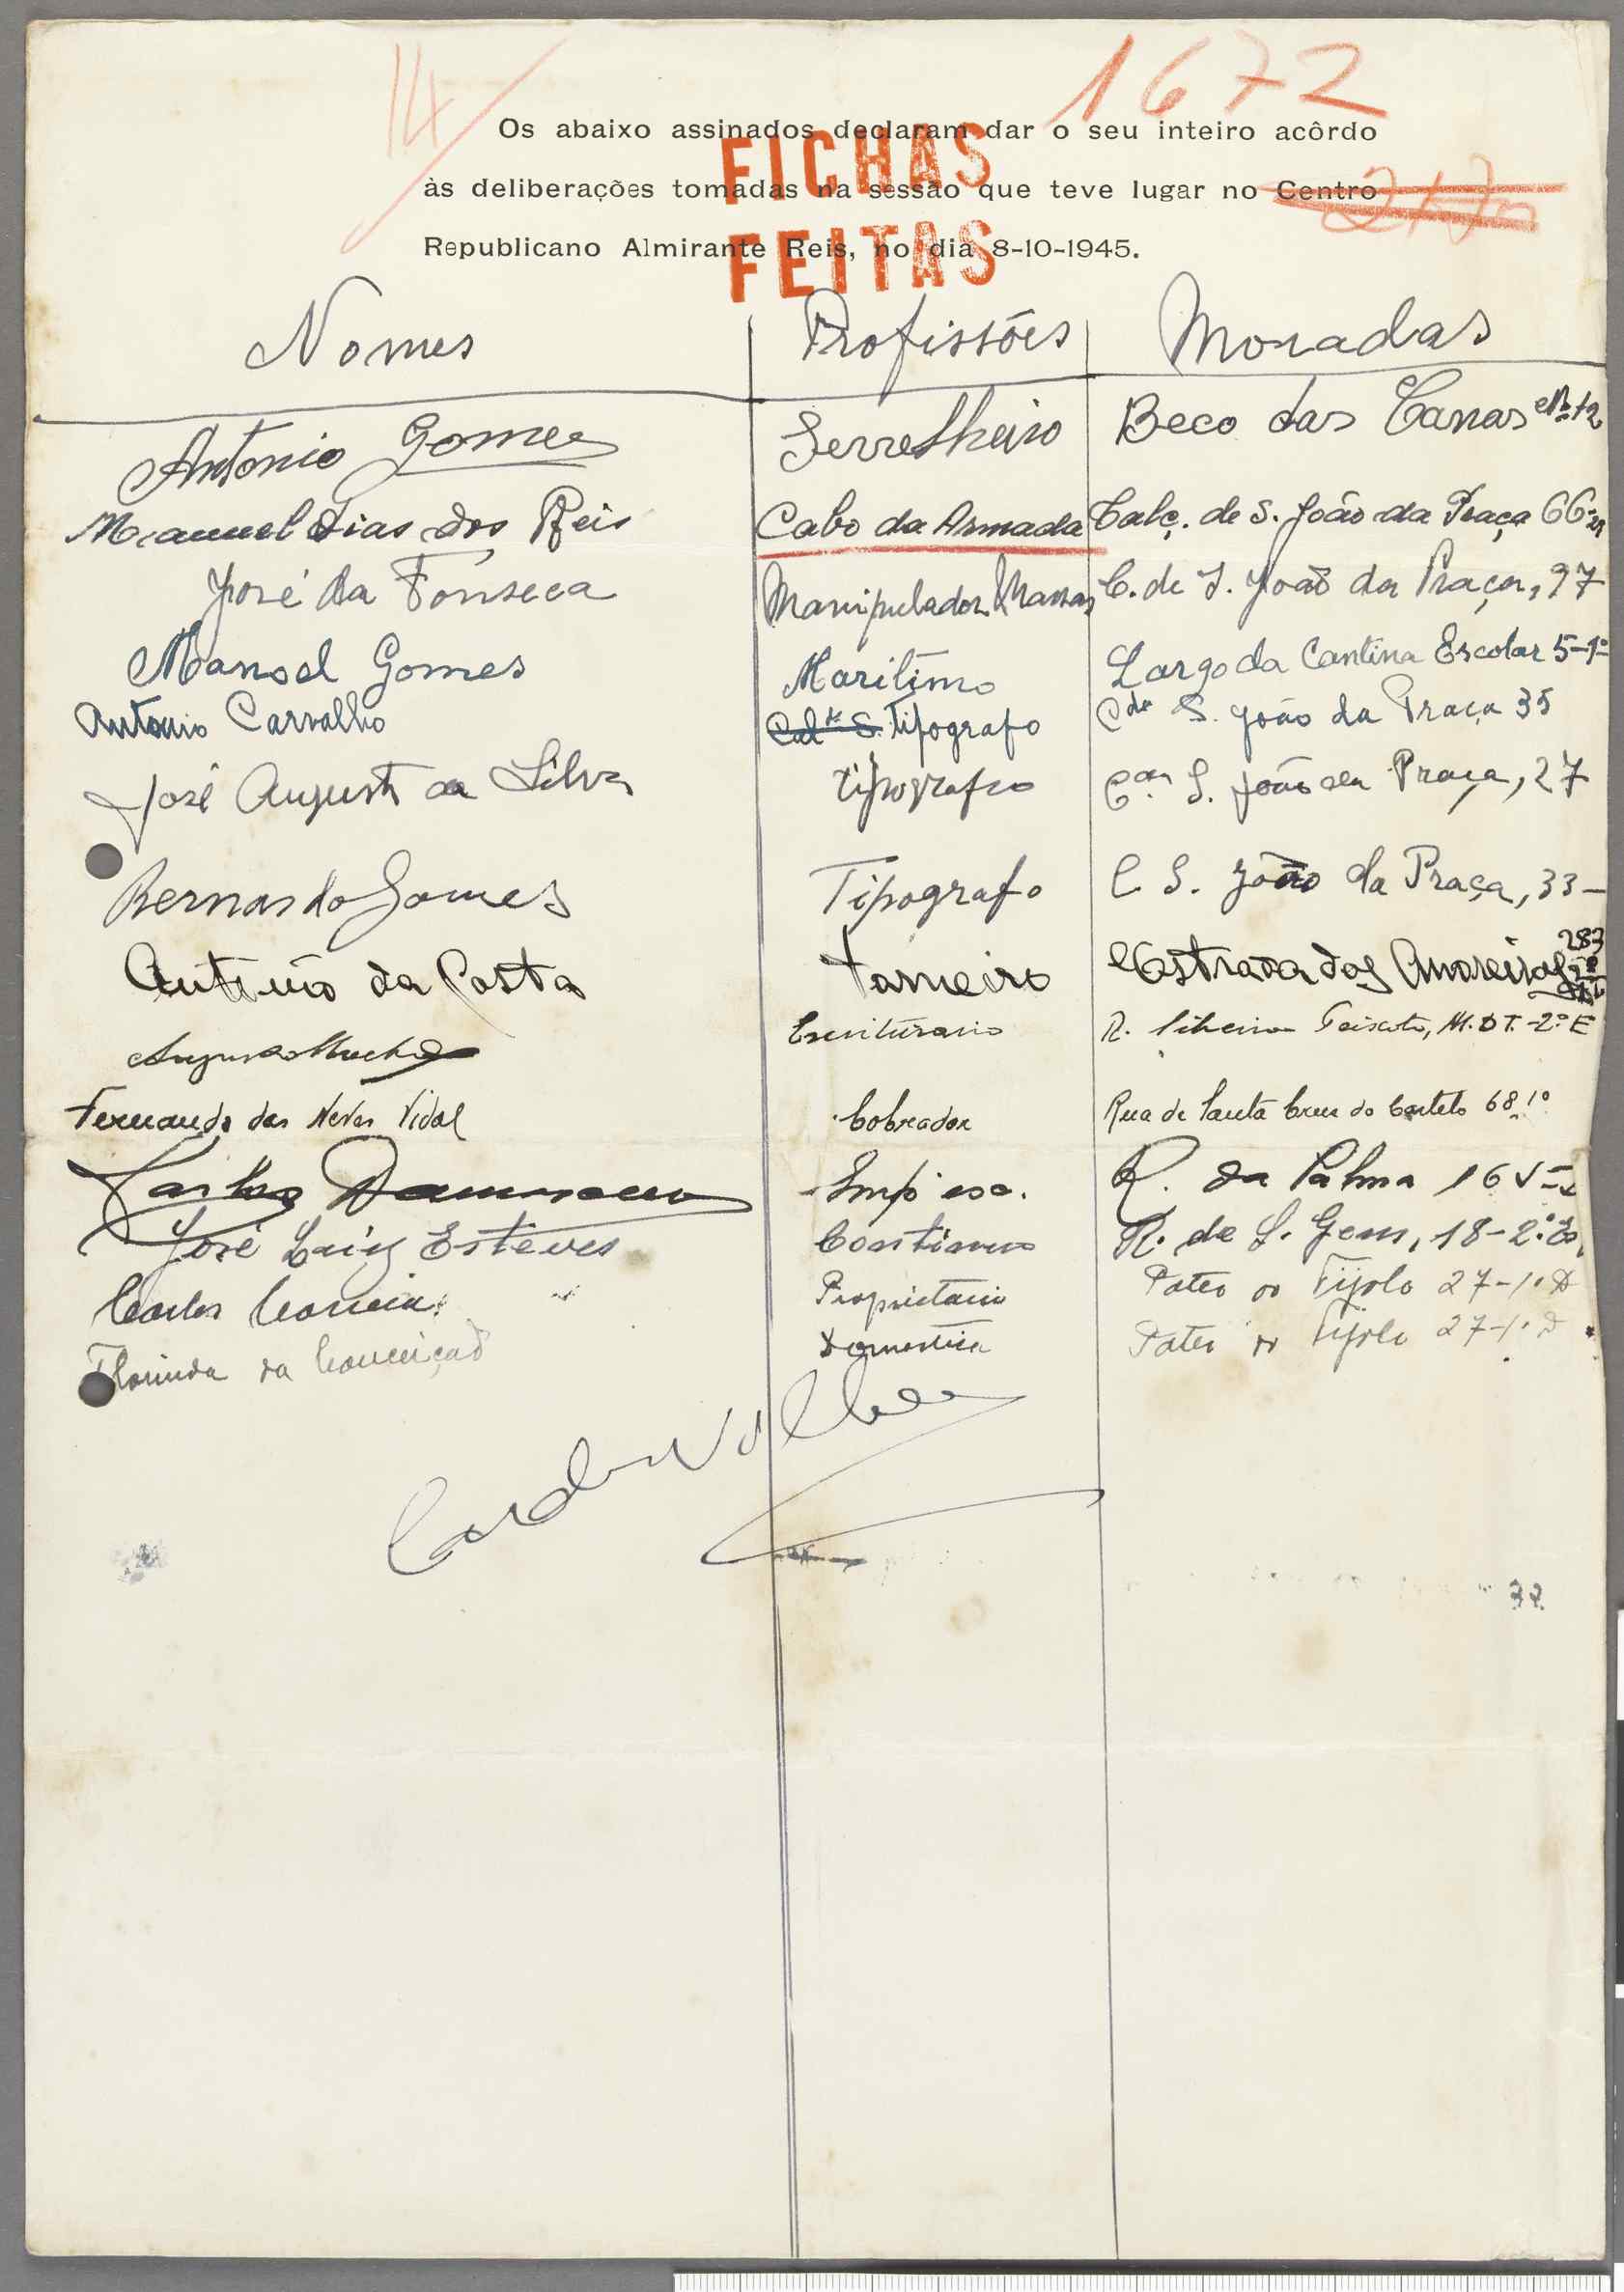 14
1672
Os abaixo assinados declaram dar o seu inteiro acôrdo
às deliberações tomadas na sessão que teve lugar no Centro
Republicano Almirante Reis, no dia 8-10-1945.
FICHAS
FEITAS
Nomes Profissões Moradas
Antonio Gomes Serrelheiro Beco das Canas Nº 12
Manuel Dias dos Reis Cabo da Armada Calç. de S. João da Praça 66
José da Fonseca Manipulador Massas C. de S. João da Praça, 97
Manoel Gomes Maritimo Largo da Cantina Escolar 5-1º
Antonio Carvalho Tipografo S. João da Praça 35
José Augusto da Silva Tipografo S. João da Praça, 27
Bernardo Gomes Tipografo C S. João da Praça, 33-
Antonio da Costa torneiro Estrada das Amoreiras 283
Escriturario R. Ribeiro 2º E
Fernando das Neves Vidal Cobrador Rua de Santa Cruz do Castelo 68 1º
Carlos Damasceno Emp esc. R. da Palma 165
José Luiz Esteves Continuo R. de S. Gens, 18-2º
Carlos Correia Proprietario Pateo do Tijolo 27-1º D
Florinda da Conceição Domestica Pateo do Tijolo 27-1º D